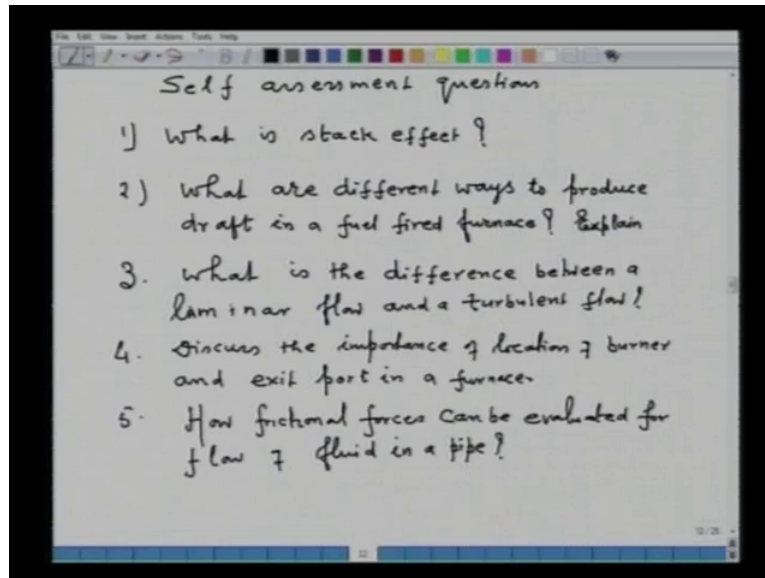 File Edit View Insert Actions Tools Help
Self assessment questions
1) What is stack effect?
2) What are different ways to produce
draft in a fuel fired furnace? Explain
3. What is the difference between a
laminar flow and a turbulent flow?
4. Discuss the importance of location of burner
and exit port in a furnace.
5. How frictional forces can be evaluated for
flow of fluid in a pipe?